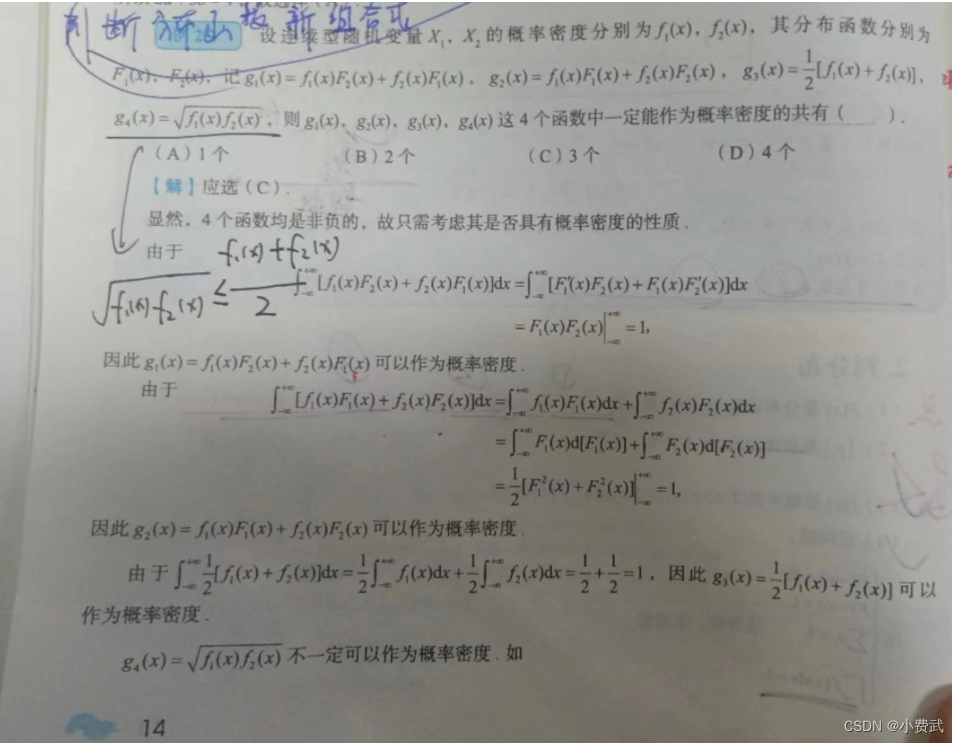 判断 函数 新组合式
设连续型随机变量 X₁, X₂ 的概率密度分别为 f₁(x), f₂(x), 其分布函数分别为
F₁(x), F₂(x), 记 g₁(x) = f₁(x)F₂(x) + f₂(x)F₁(x), g₂(x) = f₁(x)F₁(x) + f₂(x)F₂(x), g₃(x) = 1/2[f₁(x) + f₂(x)],
g₄(x) = √(f₁(x)f₂(x)), 则 g₁(x), g₂(x), g₃(x), g₄(x) 这 4 个函数中一定能作为概率密度的共有 ( ).
(A) 1 个 (B) 2 个 (C) 3 个 (D) 4 个
【解】应选 (C).
显然, 4 个函数均是非负的, 故只需考虑其是否具有概率密度的性质.
由于
√(f₁(x) f₂(x)) ≤ (f₁(x) + f₂(x))/2
∫_{-∞}^{+∞} [f₁(x)F₂(x) + f₂(x)F₁(x)]dx = ∫_{-∞}^{+∞} [F₁′(x)F₂(x) + F₁(x)F₂′(x)]dx
= F₁(x)F₂(x)|_{-∞}^{+∞} = 1,
因此 g₁(x) = f₁(x)F₂(x) + f₂(x)F₁(x) 可以作为概率密度.
由于
∫_{-∞}^{+∞} [f₁(x)F₁(x) + f₂(x)F₂(x)]dx = ∫_{-∞}^{+∞} f₁(x)F₁(x)dx + ∫_{-∞}^{+∞} f₂(x)F₂(x)dx
= ∫_{-∞}^{+∞} F₁(x)d[F₁(x)] + ∫_{-∞}^{+∞} F₂(x)d[F₂(x)]
= 1/2[F₁²(x) + F₂²(x)]|_{-∞}^{+∞} = 1,
因此 g₂(x) = f₁(x)F₁(x) + f₂(x)F₂(x) 可以作为概率密度.
由于 ∫_{-∞}^{+∞} 1/2[f₁(x) + f₂(x)]dx = 1/2∫_{-∞}^{+∞} f₁(x)dx + 1/2∫_{-∞}^{+∞} f₂(x)dx = 1/2 + 1/2 = 1, 因此 g₃(x) = 1/2[f₁(x) + f₂(x)] 可以
作为概率密度.
g₄(x) = √(f₁(x)f₂(x)) 不一定可以作为概率密度. 如
14
CSDN @小费武